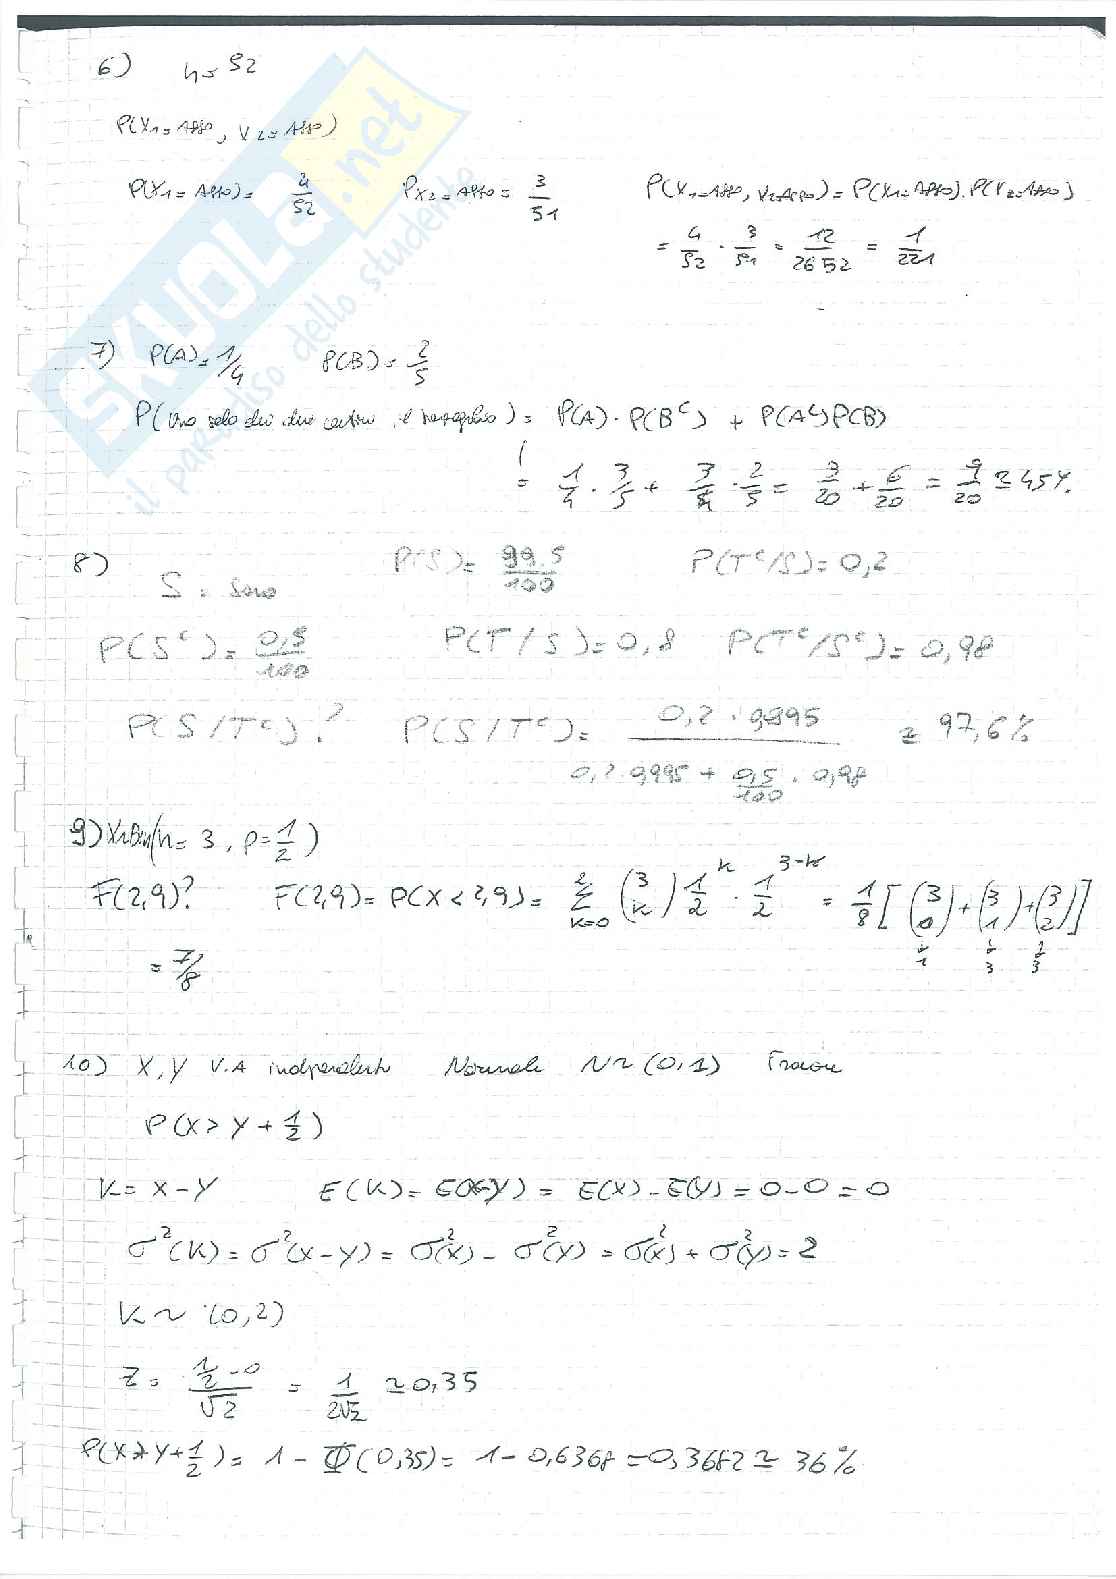 6) n = 52
P(X1 = Asso, X2 = Asso)
P(X1 = Asso) = 4/52 PX2 = Asso = 3/51 P(X1 = Asso, X2 = Asso) = P(X1 = Asso) . P(X2 = Asso)
= 4/52 · 3/51 = 12/2652 = 1/221
7) P(A) = 1/4 P(B) = 2/5
P(Uno solo dei due centri il bersaglio) = P(A) · P(B^c) + P(A^c) P(B)
= 1/4 · 3/5 + 3/4 · 2/5 = 3/20 + 6/20 = 9/20 ≃ 45%.
8) P(S) = 99.5/100 P(T^c/S) = 0,2
S = Sano
P(S^c) = 0,5/100 P(T/S) = 0,8 P(T^c/S^c) = 0,98
P(S/T^c)? P(S/T^c) = 0,2 · 0,995 / 0,2 · 0,995 + 0,5/100 · 0,98 ≃ 97,6%
9) X~Bin(n = 3, p = 1/2)
F(2,9)? F(2,9) = P(X < 2,9) = Σ k=0 2 (3 k) 1/2^k · 1/2^3-k = 1/8 [(3 0) + (3 1) + (3 2)]
1 3 3
= 7/8
10) X, Y V.A indipendenti Normale N ~ (0,1) Trovare
P(X > Y + 1/2)
K = X - Y E(K) = E(X-Y) = E(X) - E(Y) = 0 - 0 = 0
σ²(K) = σ²(X - Y) = σ²(X) - σ²(Y) = σ²(X) + σ²(Y) = 2
K ~ (0,2)
Z = 1/2 - 0 / √2 = 1/2√2 ≃ 0,35
P(X > Y + 1/2) = 1 - Φ(0,35) = 1 - 0,6368 = 0,3682 ≃ 36%
SKUOLA.net
il paradiso dello studente